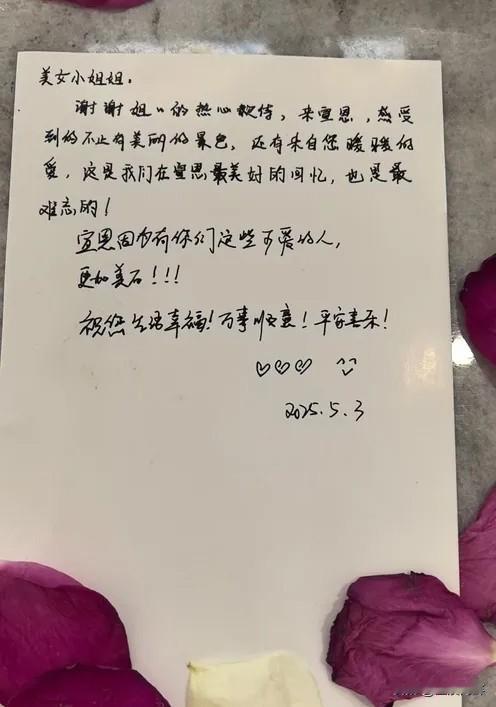 美女小姐姐。
谢谢姐〃的热心款待，来宣恩，感受
到的不止有美丽的景色，还有来自您暖暖的
爱，这是我们在宣恩最美好的回忆，也是最
难忘的！
宣恩因为有你们这些可爱的人，
更加美丽！！！
祝您生活幸福！万事顺意！平安喜乐！
♡♡♡ ^^
2025.5.3